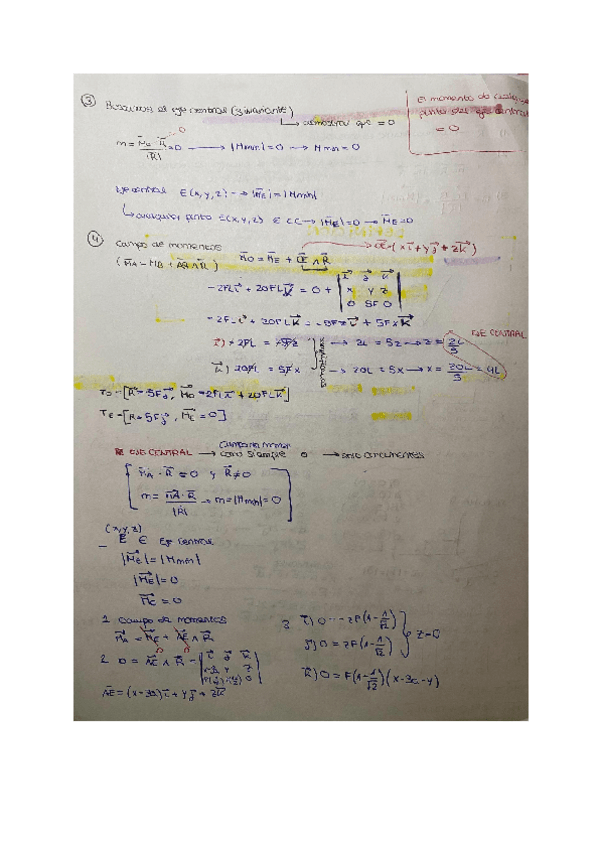 ③ Buscamos el eje central (3 invariante)
↳ demostrar que = 0
El momento de cualquier
punto del eje central
= 0
m = M⃗ · R⃗ / |R⃗| = 0 → |M min| = 0 → M min = 0
Eje central E(x, y, z) → |M⃗E| = |M min|
↳ cualquier punto E(x, y, z) ∈ EC → |M⃗E| = 0 → M⃗E = 0
④ Campo de momentos
OE = (x i⃗ + y j⃗ + z k⃗)
(M⃗A = MB + AB ∧ R⃗) M⃗O = M⃗E + OE ∧ R⃗
-2FL i⃗ + 20FL k⃗ = 0 + | i⃗ j⃗ k⃗ |
| x y z |
| 0 5F 0 |
-2FL i⃗ + 20FL k⃗ = -5Fz i⃗ + 5Fx k⃗
EJE CENTRAL
i⃗) -2FL = -5Fz → 2L = 5z → z = 2L/5
k⃗) 20FL = 5Fx → 20L = 5x → x = 20L/5 = 4L
TO = [R⃗ = 5F j⃗, M⃗O = -2FL i⃗ + 20FL k⃗]
TE = [R = 5F j⃗, M⃗E = 0]
EJE CENTRAL → como siempre 0
M⃗A · R⃗ = 0 y R⃗ ≠ 0
m = M⃗A · R⃗ / |R⃗| → m = |M min| = 0
(x, y, z)
E ∈ Eje central
|M⃗E| = |M min|
|M⃗E| = 0
M⃗E = 0
1. Campo de momentos
M⃗A = M⃗E + AE ∧ R⃗
2. 0 = AE ∧ R⃗ = | i⃗ j⃗ k⃗ |
AE = (x - 3a) i⃗ + y j⃗ + z k⃗
3. i⃗) 0 = -zF(1 - 1/√2)
j⃗) 0 = zF(1 - 1/√2) } z = 0
k⃗) 0 = F(1 - 1/√2)(x - 3a - y)